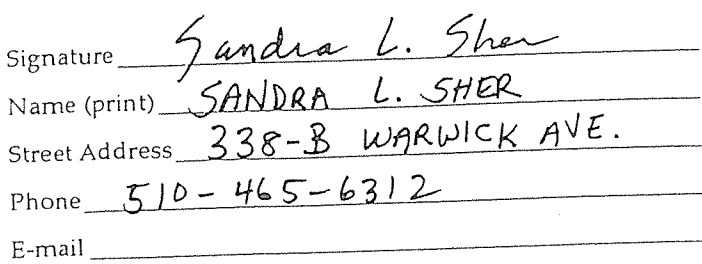 Signature Sandra L. Sher
Name (print) SANDRA L. SHER
Street Address 338-B WARWICK AVE.
Phone 510-465-6312
E-mail